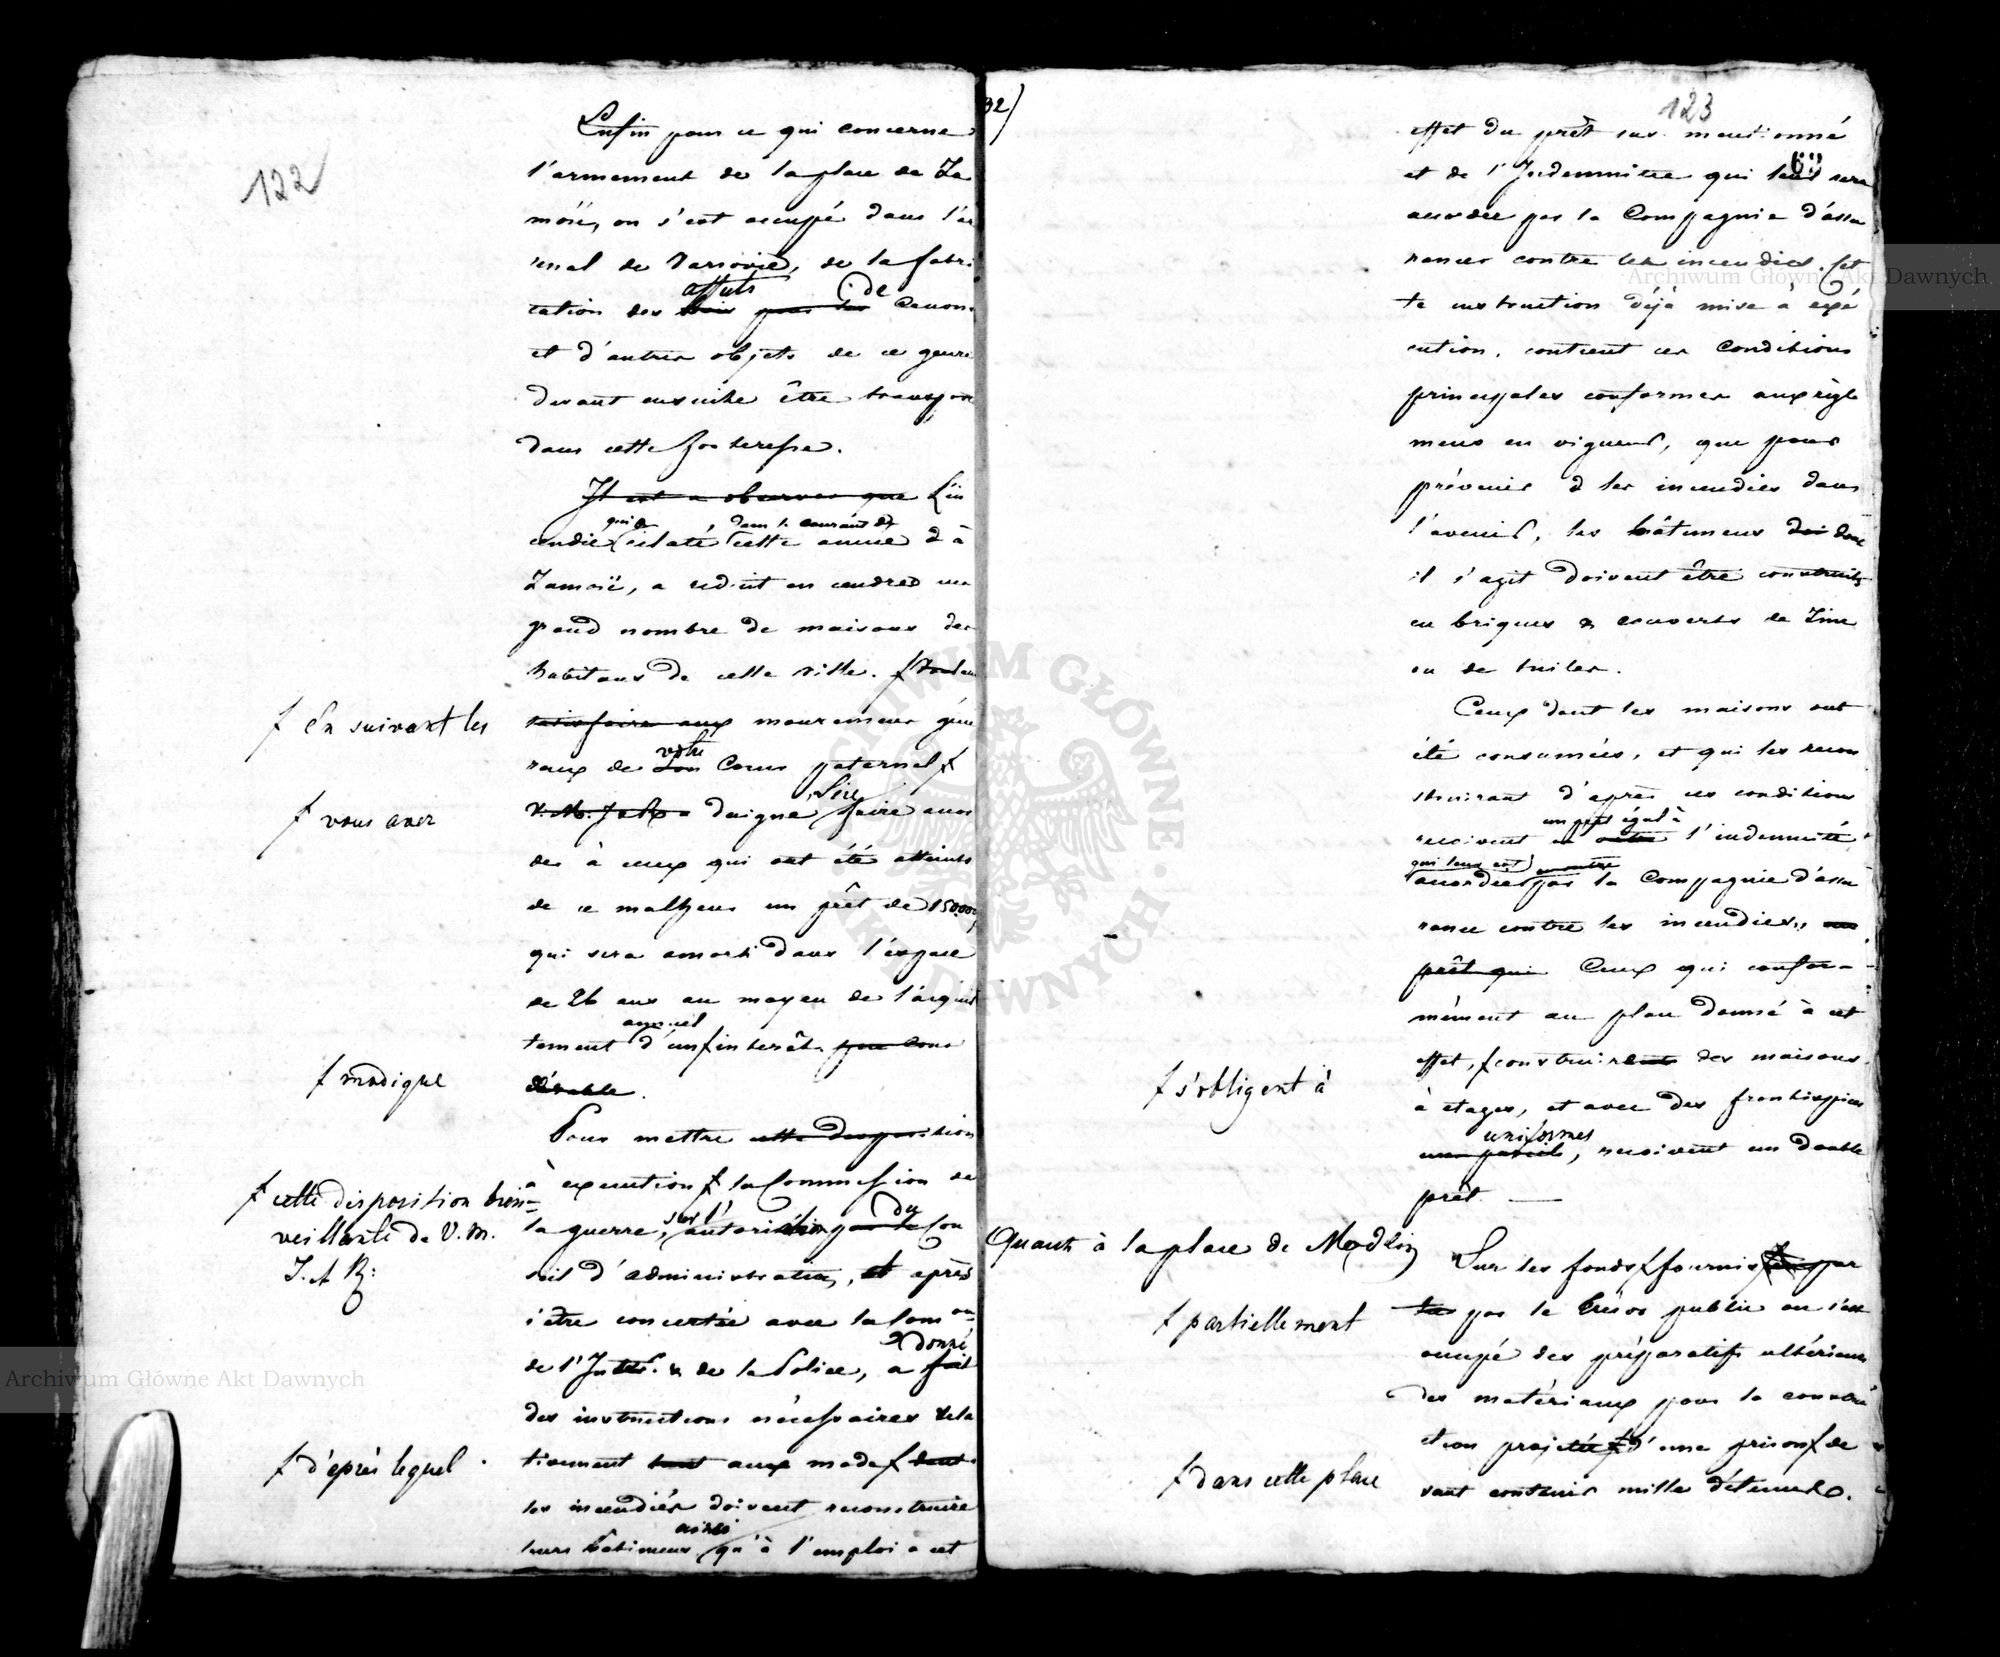 122
Enfin pour ce qui concerne
l'armement de la place de Za
mość, on s'est occupé dans l'ar
senal de Varsovie, de la fabri
affuts de
cation des bois pour des Canons
et d'autres objets de ce genre
devant ensuite être transpor
dans cette forteresse.
Il est a observer que L'in
qui a dans le courant de
cendie éclaté cette année d à
Zamość, a réduit en cendres un
grand nombre de maisons des
habitans de cette ville. f Voulant
f En suivant les
satisfaire aux mouvemens géné
votre
raux de Son Coeur paternel f
Sire
f vous avez
V. M. J. et R. a daigné faire accor
der à ceux qui ont été atteints
de ce malheur un prêt de 150,000
qui sera amorti dans l'espace
de 26 ans au moyen de l'acquit
annuel
tement d'un f intérêt peu consi
f modique
dérable.
Pour mettre cette disposition
à execution f la Commission de
f cette disposition bien=
veillante de V. M.
J. et R:
sur l' du
la guerre, autorisation par le Con
seil d'administration, et après
s'être concertée avec la Com on
donné
de l'Intér. & de la Police, a fait
des instructions nécessaires rela
tivement tant aux mode f dont
f d'après lequel
les incendiés doivent reconstruire
ainsi
leurs bâtimens, qu'à l'emploi a cet
32)
123
effet du prêt sus mentionné
et de l'Indemnitée qui leur sera
accordée par la Compagnie d'assu
rances contre les incendies. Cet
te instruction déjà mise à exé
cution, contient ces Conditions
principales conformes aux règle
mens en vigueur, que pour
prévenir d les incendies dans
l'avenir, les bâtimens doi dont
il s'agit doivent être construits
en briques & couverts de Zinc
ou de tuiles.
Ceux dont les maisons ont
été consumées, et qui les recon
struiront d'après ces conditions
un prêt égal à
recoivent en outre l'indemnité
qui leur est en outre
accordée par la Compagnie d'assu
rance contre les incendies, un
prêt qui Ceux qui confor=
mément au plan donné à cet
effet, f construiront des maisons
f s'obligent à
à etages, et avec des frontispices
uniformes
un pareils, recoivent un double
prêt. —
Quant à la place de Modlin
Sur les fonds f fournis par
f partiellement
par le trésor public on s'est
occupé des préparatifs ultérieurs
des matériaux pour la constru
ction projetée f d'une prison f de
f dans cette place
vant contenir mille détenus.
CHIWUM GŁÓWNE · AKT DAWNYCH ·
Archiwum Główne Akt Dawnych
Archiwum Główne Akt Dawnych